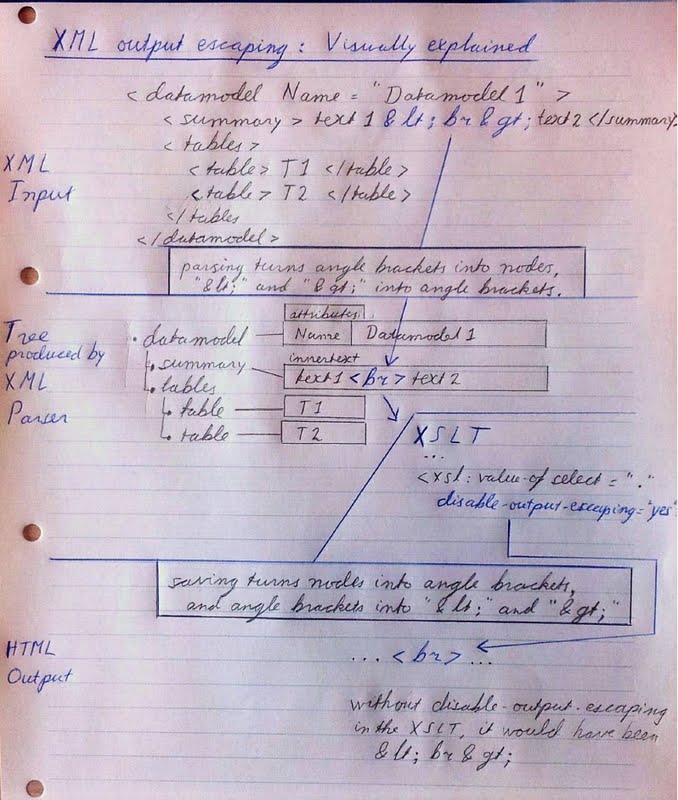 XML output escaping : Visually explained
< datamodel Name = "Datamodel 1" >
< summary > text 1 & lt ; br & gt ; text 2 </ summary>
< tables >
XML
Input
< table > T1 </ table >
< table > T2 </ table >
</ tables
</ datamodel >
parsing turns angle brackets into nodes,
"& lt ;" and "& gt ;" into angle brackets.
Tree
produced by
XML
Parser
attributes
datamodel Name Datamodel 1
innertext
summary text 1 < br > text 2
tables
table T1
table T2
XSLT
...
< xsl : value-of select = "."
disable-output-escaping="yes"
saving turns nodes into angle brackets,
and angle brackets into "& lt ;" and "& gt ;"
HTML
Output
... < br > ...
without disable-output-escaping
in the XSLT, it would have been
& lt ; br & gt ;